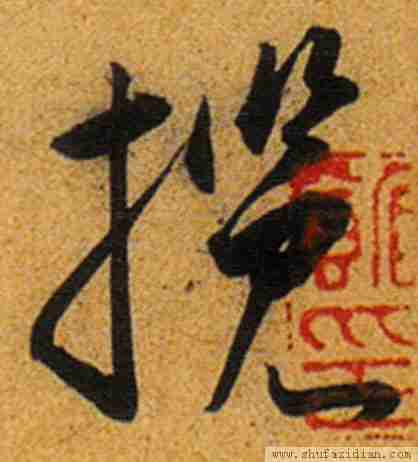 攬
www.shufazidian.com